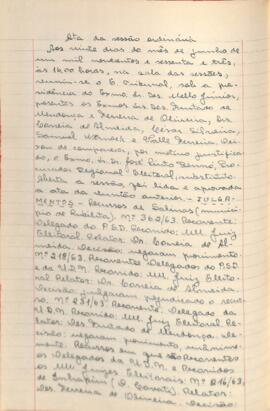 Ata da sessão ordinária
Aos vinte dias do mês de junho de
um mil novecentos e sessenta e três,
às 14,00 horas, na sala das sessões,
reuniu-se o E. Tribunal, sob a pre-
sidência do Exmo. Sr. Des. Mello Júnior,
presentes os Exmos. Srs. Des. Furtado de
Mendonça e Ferreira de Oliveira, Drs.
Correia de Almeida, César Silveira,
Samuel e Valle Ferreira. Dei-
xou de comparecer, por motivo justifica-
do, o Exmo. Sr. Dr. José Pinto
Regional Eleitoral, substituto.
Aberta a sessão, foi lida e aprovada
a ata da reunião anterior. - JULGA-
MENTOS - Recursos de Salinas (municí-
pio de Rubelita). Nº 360/63. Recorrente:
Delegado do P.S.D. Recorrido: MM. Juiz
Eleitoral. Relator: Dr. Correia de Al-
meida. Decisão:
Nº 218/63. Recorrentes: Delegados do P.S.D.
e da U.D.N. Recorrido: MM. Juiz Eleito-
ral. Relator: Dr. Correia de Almeida.
Decisão: julgaram prejudicado o recur-
so. Nº 231/63. Recorrente: Delegado da
U.D.N. Recorrido: MM. Juiz Eleitoral. Re-
lator: Des. Furtado de Mendonça. Deci-
são: negaram provimento, unânime-
mente. Recursos em que são Recorrentes
os Delegados da U.D.N. e Recorridos
os MM. Juízes Eleitorais: Nº 016/63,
de
Des. Ferreira de Oliveira. Decisão: